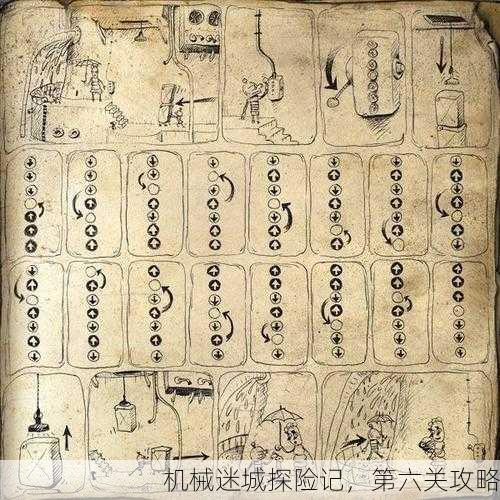 机械迷城探险记，第六关攻略